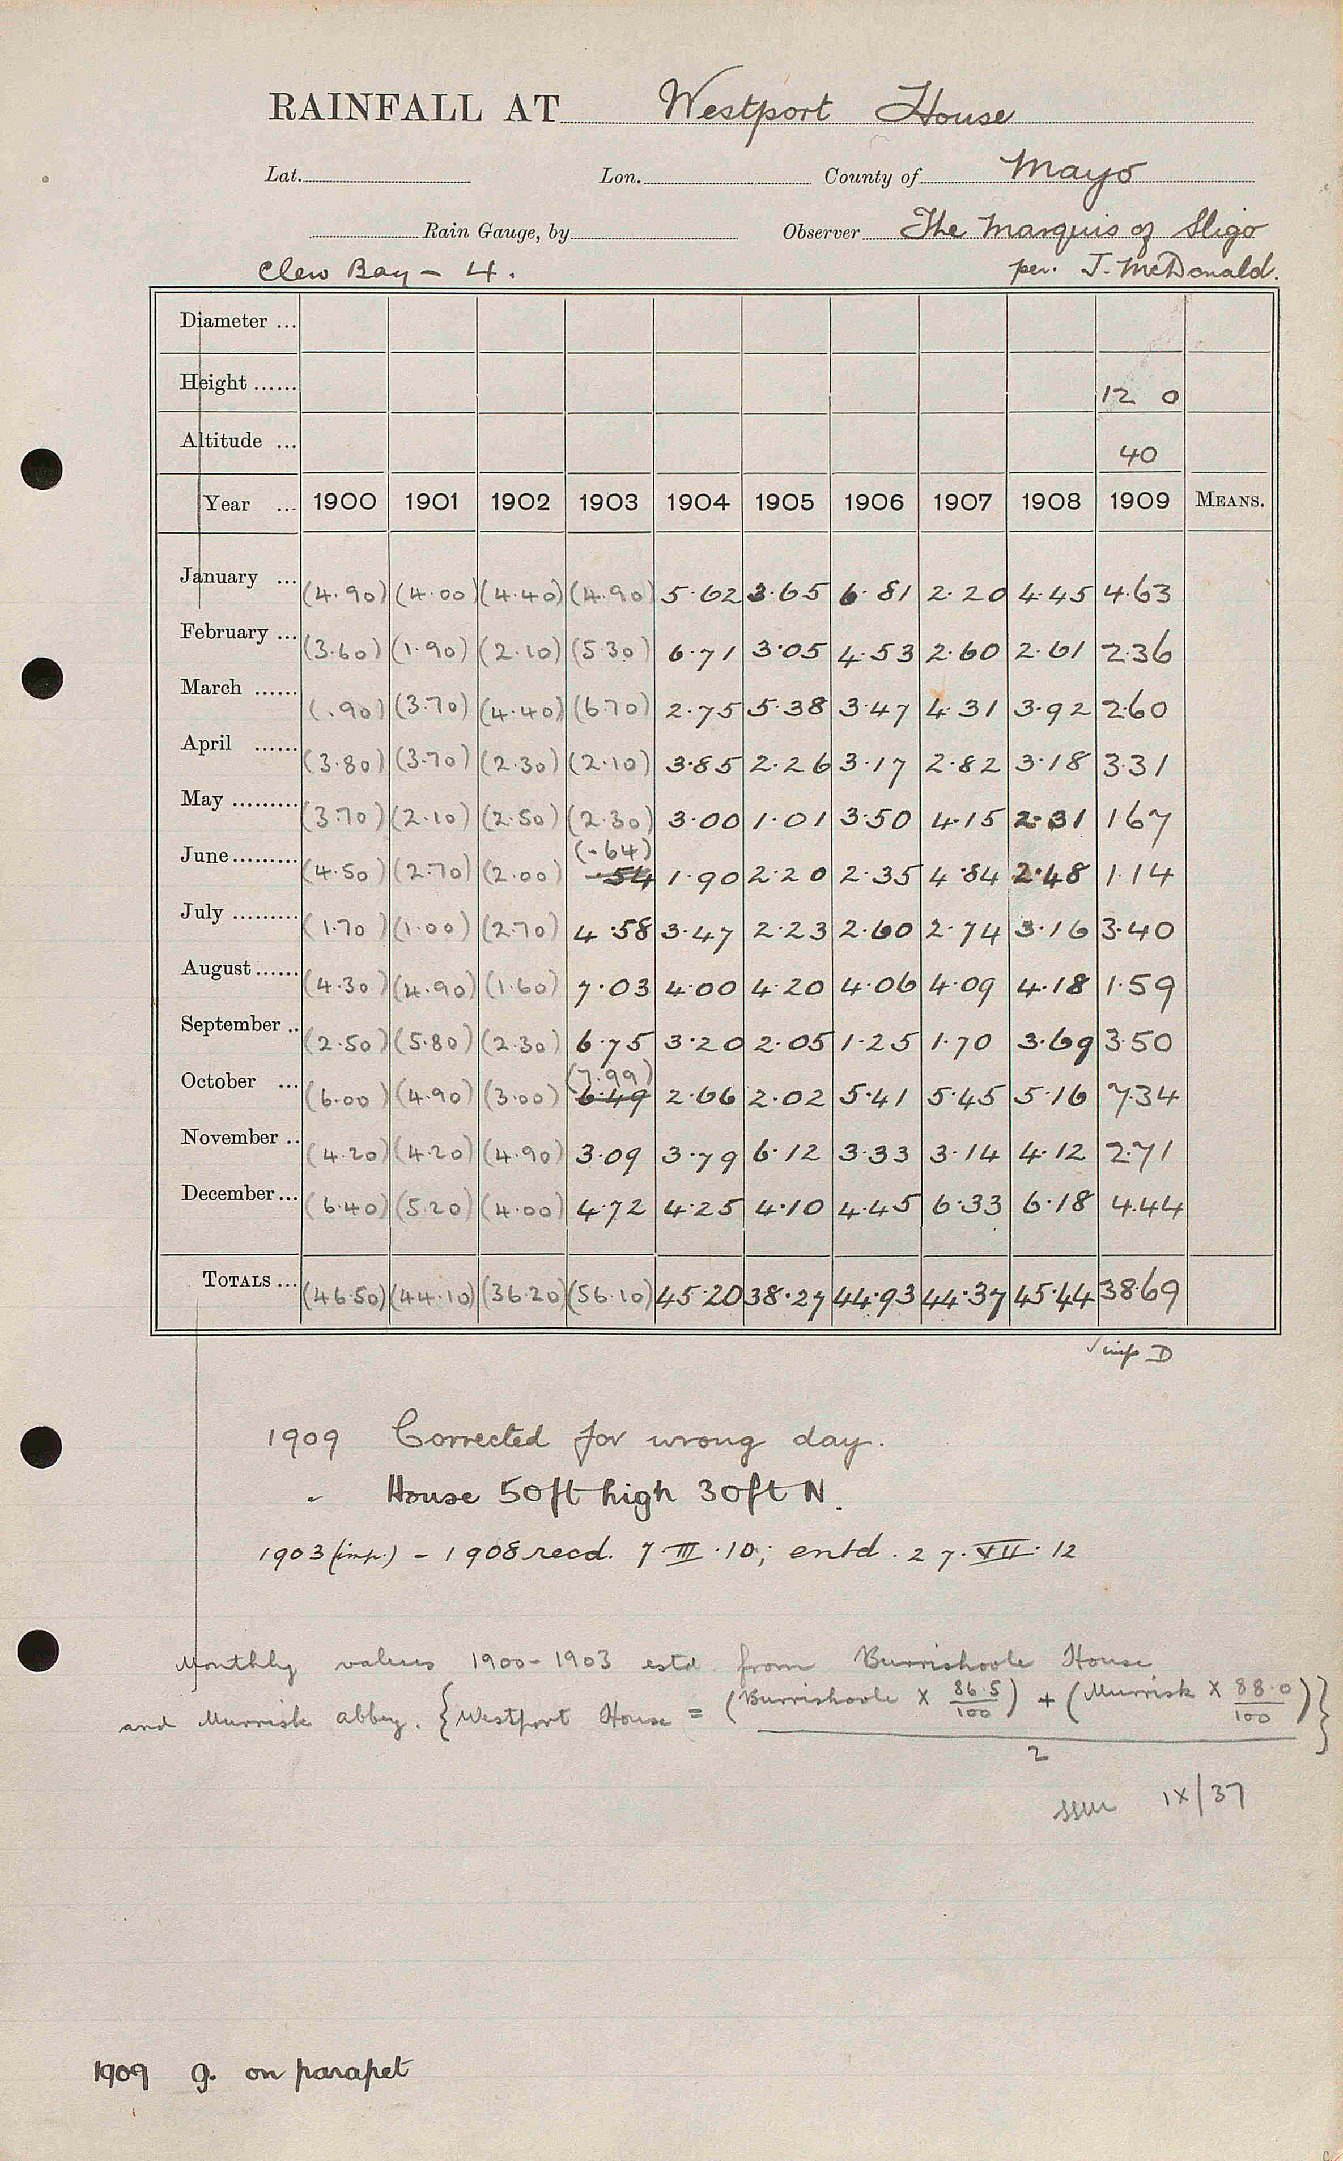 RAINFALL AT Westport House
Lat. Lon. County of Mayo
Rain Gauge, by Observer The Marquis of Sligo
Clew Bay - 4. per. J. McDonald.
Diameter ...
Height ...... 12 0
Altitude ... 40
Year ... 1900 1901 1902 1903 1904 1905 1906 1907 1908 1909 MEANS.
January ... (4.90) (4.00) (4.40) (4.90) 5.62 3.65 6.81 2.20 4.45 4.63
February ... (3.60) (1.90) (2.10) (5.30) 6.71 3.05 4.53 2.60 2.61 2.36
March ...... (.90) (3.70) (4.40) (6.70) 2.75 5.38 3.47 4.31 3.92 2.60
April ...... (3.80) (3.70) (2.30) (2.10) 3.85 2.26 3.17 2.82 3.18 3.31
May ......... (3.70) (2.10) (2.50) (2.30) 3.00 1.01 3.50 4.15 2.31 1.67
(.64)
June ......... (4.50) (2.70) (2.00) .54 1.90 2.20 2.35 4.84 2.48 1.14
July ......... (1.70) (1.00) (2.70) 4.58 3.47 2.23 2.60 2.74 3.16 3.40
August ...... (4.30) (4.90) (1.60) 7.03 4.00 4.20 4.06 4.09 4.18 1.59
September .. (2.50) (5.80) (2.30) 6.75 3.20 2.05 1.25 1.70 3.69 3.50
(7.99)
October ... (6.00) (4.90) (3.00) 6.49 2.66 2.02 5.41 5.45 5.16 7.34
November .. (4.20) (4.20) (4.90) 3.09 3.79 6.12 3.33 3.14 4.12 2.71
December ... (6.40) (5.20) (4.00) 4.72 4.25 4.10 4.45 6.33 6.18 4.44
TOTALS ... (46.50) (44.10) (36.20) (56.10) 45.20 38.27 44.93 44.37 45.44 38.69
√ imp D
1909 Corrected for wrong day.
" House 50ft high 30ft N.
1903 (imp.) - 1908 recd. 7.III.10; entd. 27.VII.12
Monthly values 1900-1903 estd. from Burrishoole House
and Murrisk Abbey. {Westport House = (Burrishoole X 86.5/100) + (Murrisk X 88.0/100)}
2
SSM IX/37
1909 g. on parapet